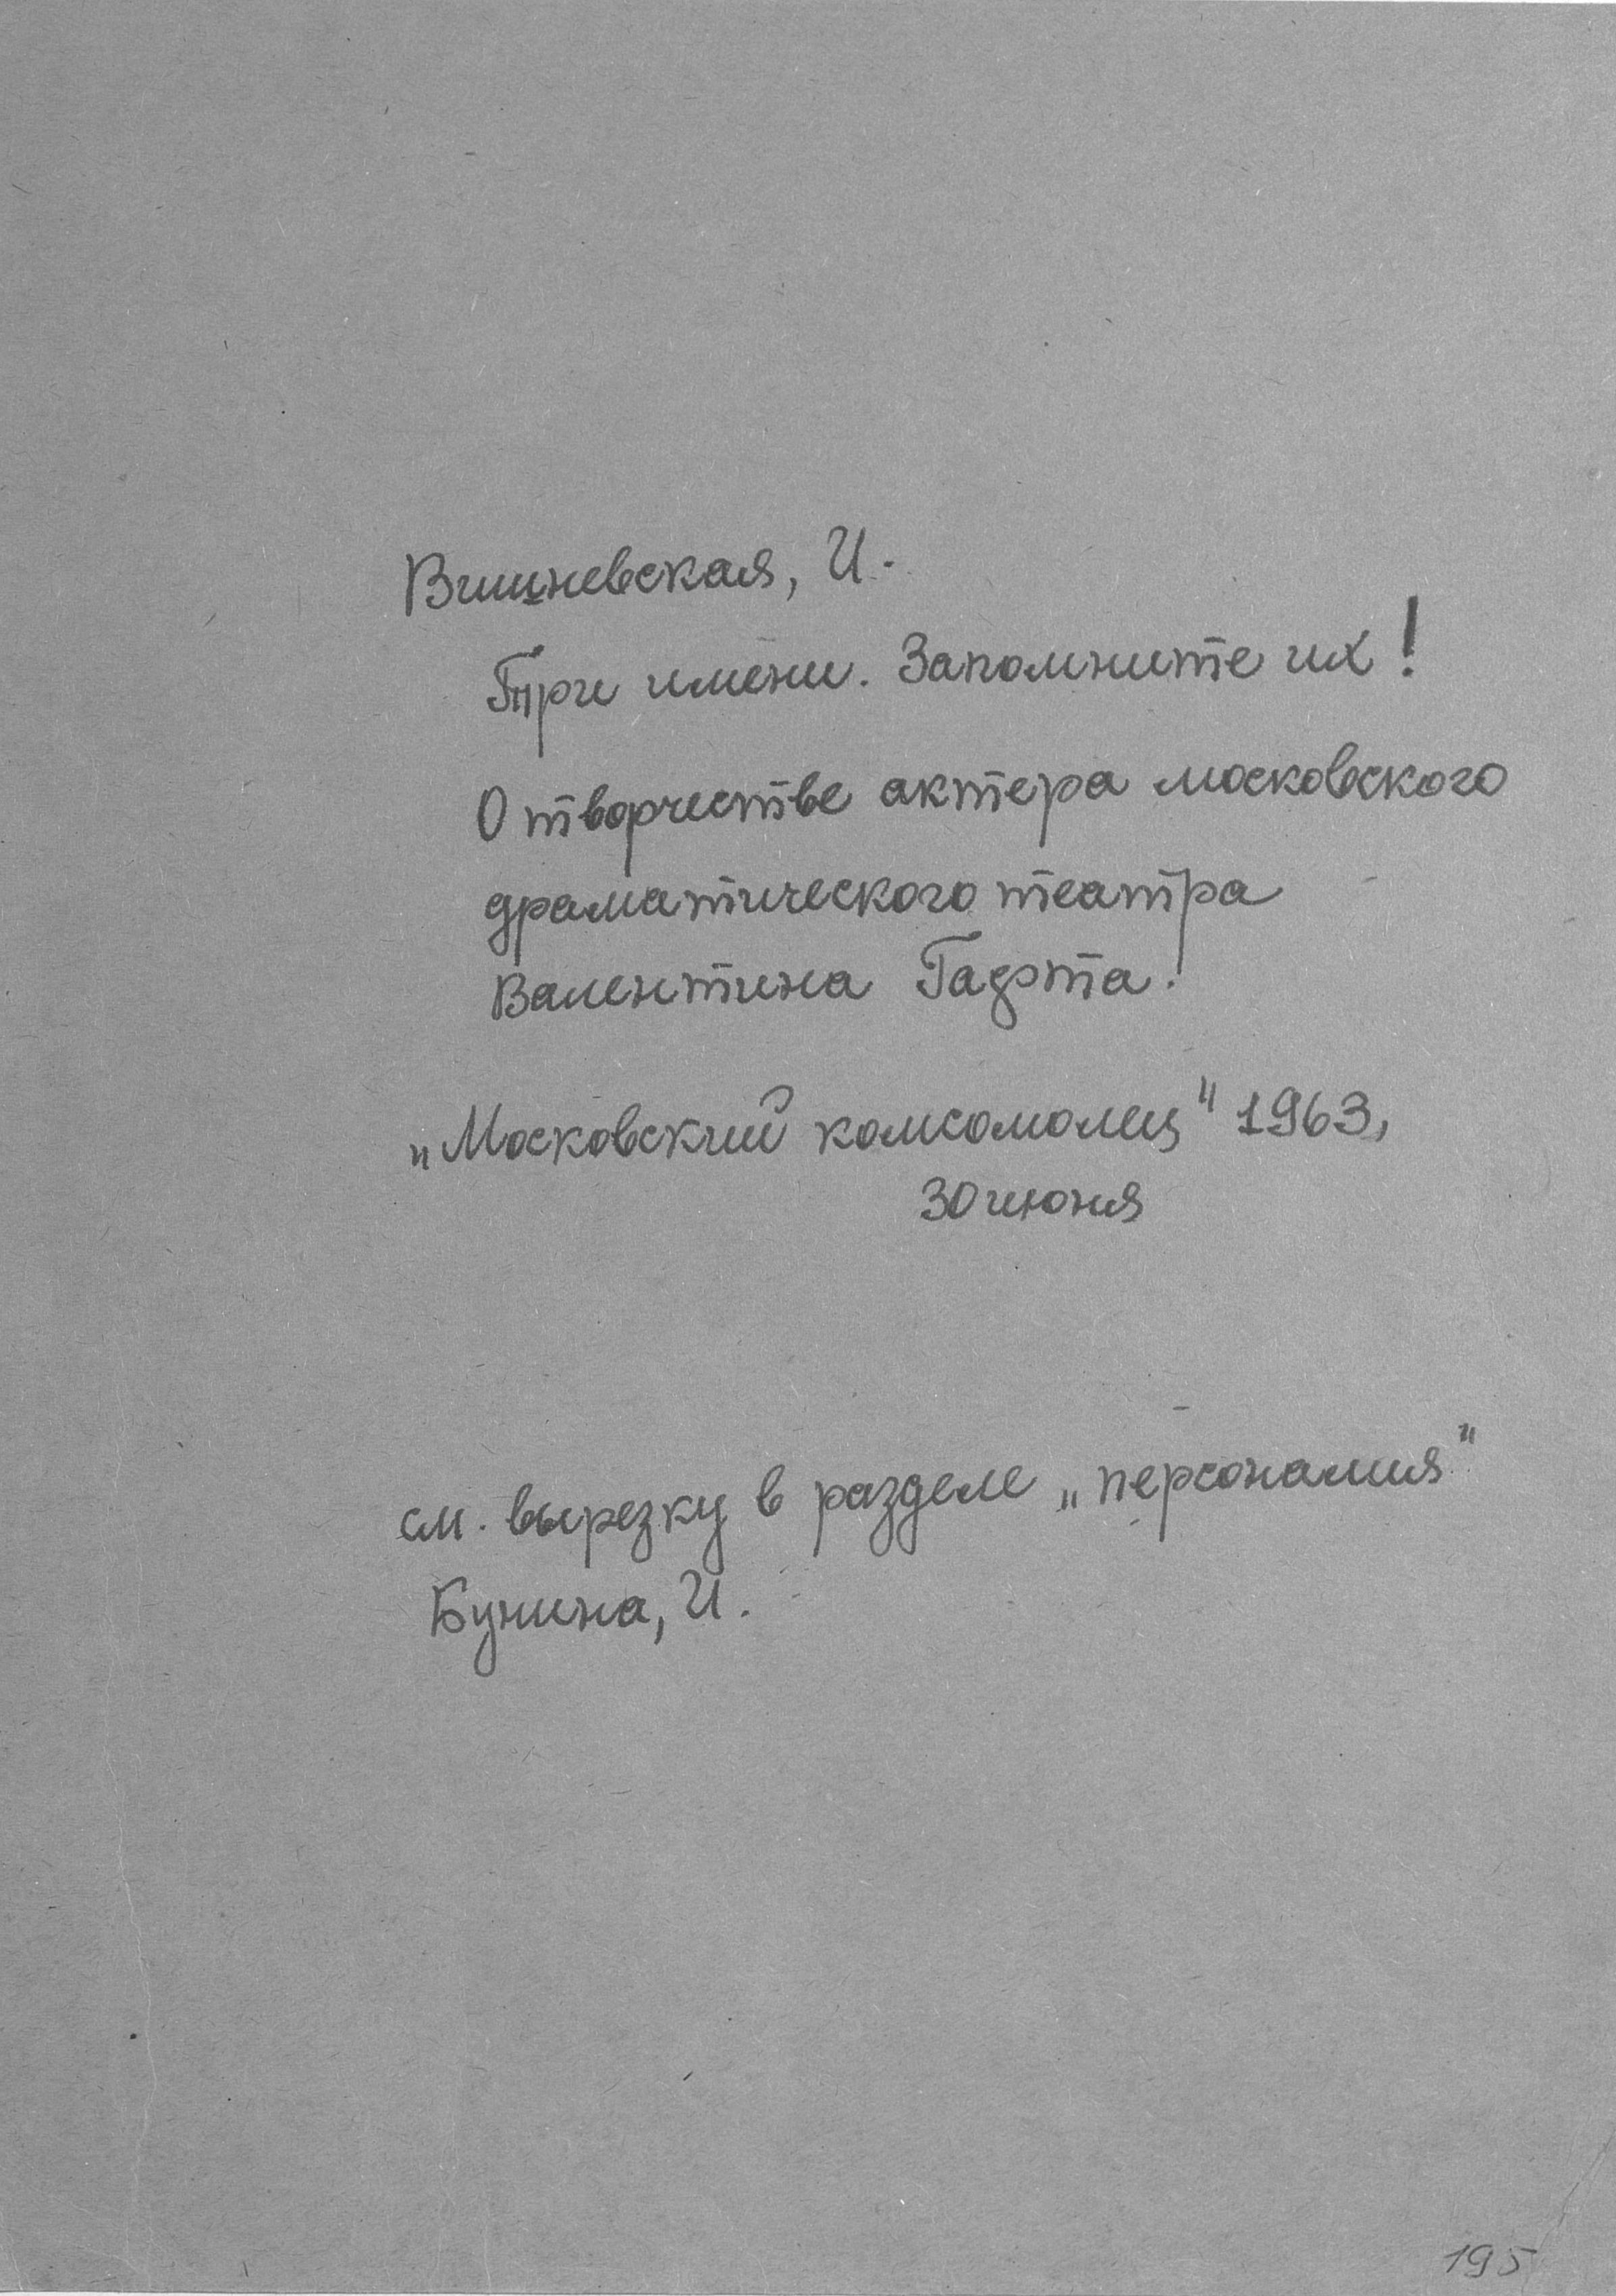 Вишневская, И.
Три имени. Запомните их!
О творчестве актера московского
драматического театра
Валентина Гафта.
„Московский комсомолец" 1963,
30 июня
см. вырезку в разделе „персоналия"
Бунина, И.
195